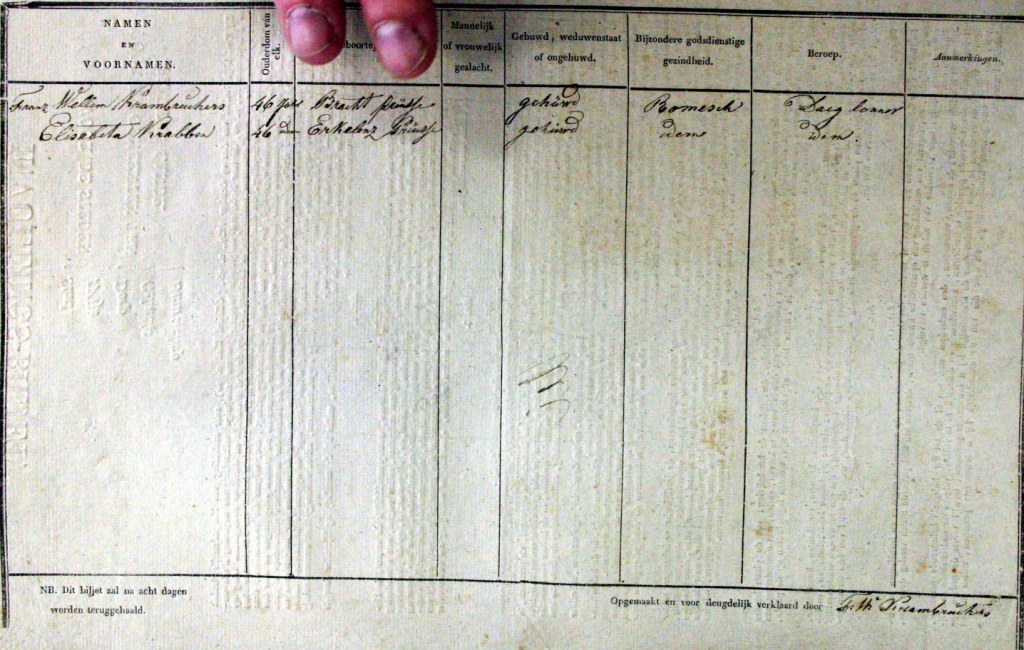 NAMEN
EN
VOORNAMEN.
Ouderdom van elk.
Mannelijk of vrouwelijk geslacht.
Gehuwd, weduwenstaat of ongehuwd.
Bijzondere godsdienstige gezindheid.
Beroep.
Aanmerkingen.
Franz Wellem Krambruckers 46 Bracht prüsse gehüwd Romesch Daeg lonner
Elisebeta Krabben 46 idem Erkelenz Prüsse gehüwd idem idem.
NB. Dit biljet zal na acht dagen
worden teruggehaald.
Opgemaakt en voor deugdelijk verklaard door Fr: W: Krambruckers